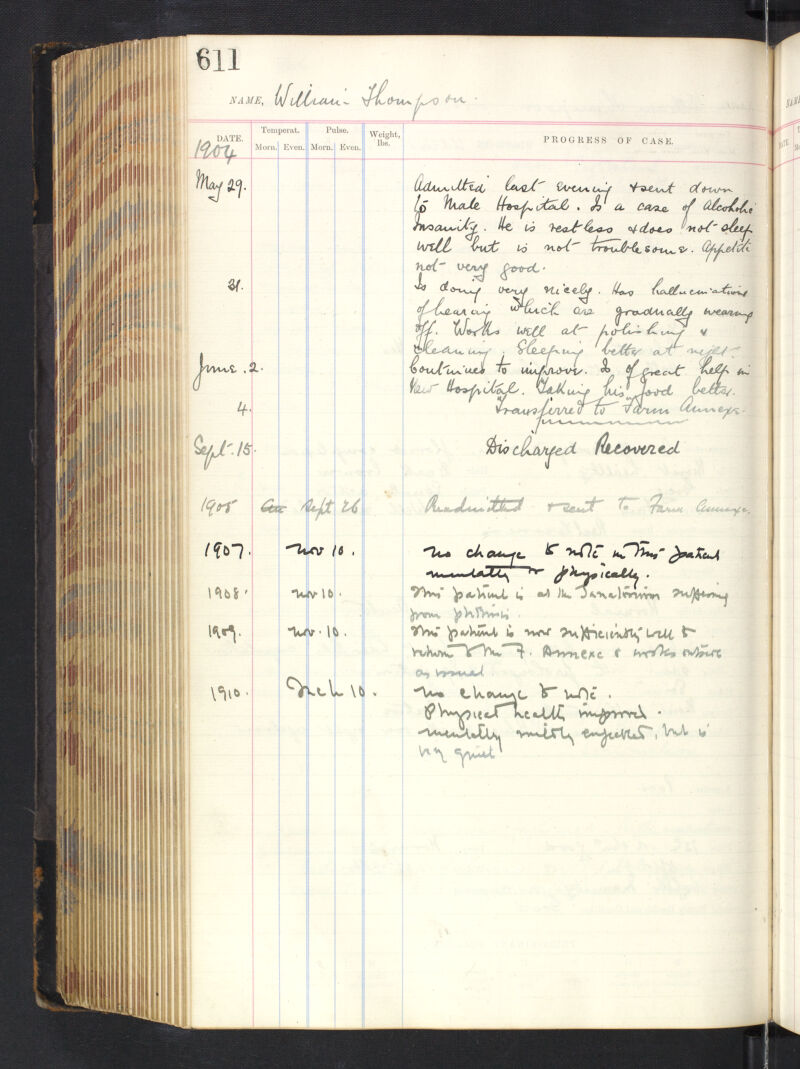 611
NAME, William Thompson.
DATE. Temperat. Pulse. Weight, lbs. PROGRESS OF CASE.
Morn. Even. Morn. Even.
1904
May 29. Admitted last evening & sent down
to Male Hospital. Is a case of Alcoholic
Insanity. He is restless & does not sleep
well but is not troublesome. Appetite
not very good.
31. Is doing very nicely. Has hallucinations
of hearing which are gradually wearing
off. Works well at polishing &
cleaning. Sleeping better at night.
June. 2. Continues to improve. Is of great help in
New Hospital. Taking his food better.
4. Transferred to Farm Annexe.
Sept. 15. Discharged Recovered
1905 Sept 26 Readmitted & sent to Farm Annexe.
1907. Nov 10. No change to note in this patient
mentally or physically.
1908. Nov 10. This patient is at the Sanatorium suffering
from phthisis.
1909. Nov. 10. This patient is now sufficiently well to
return to the F. Annexe & works outside
as usual
1910. Mch 10. No change to note.
Physical health improved.
mentally mildly enfeebled, but is
very quiet